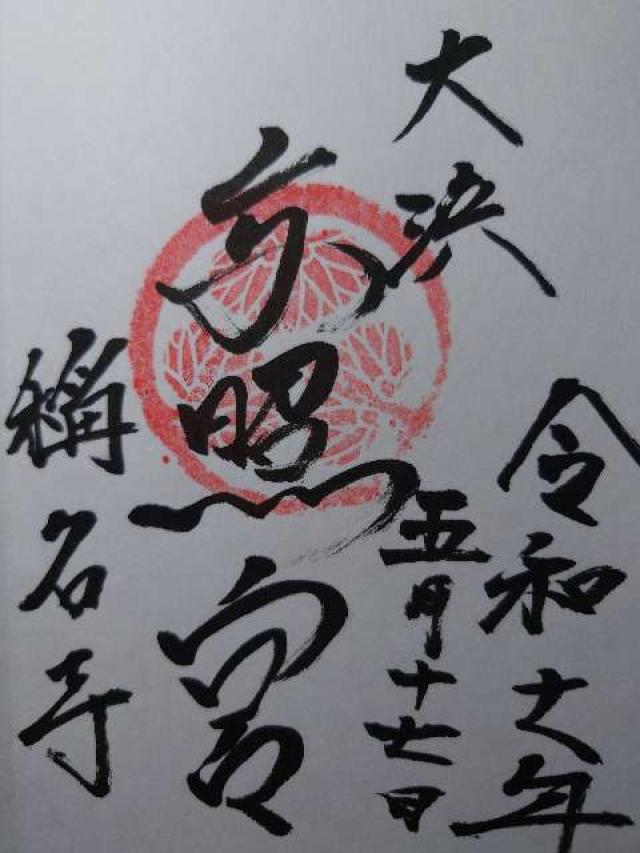 大浜
令和 年
五月十七日
東照宮
稱名寺